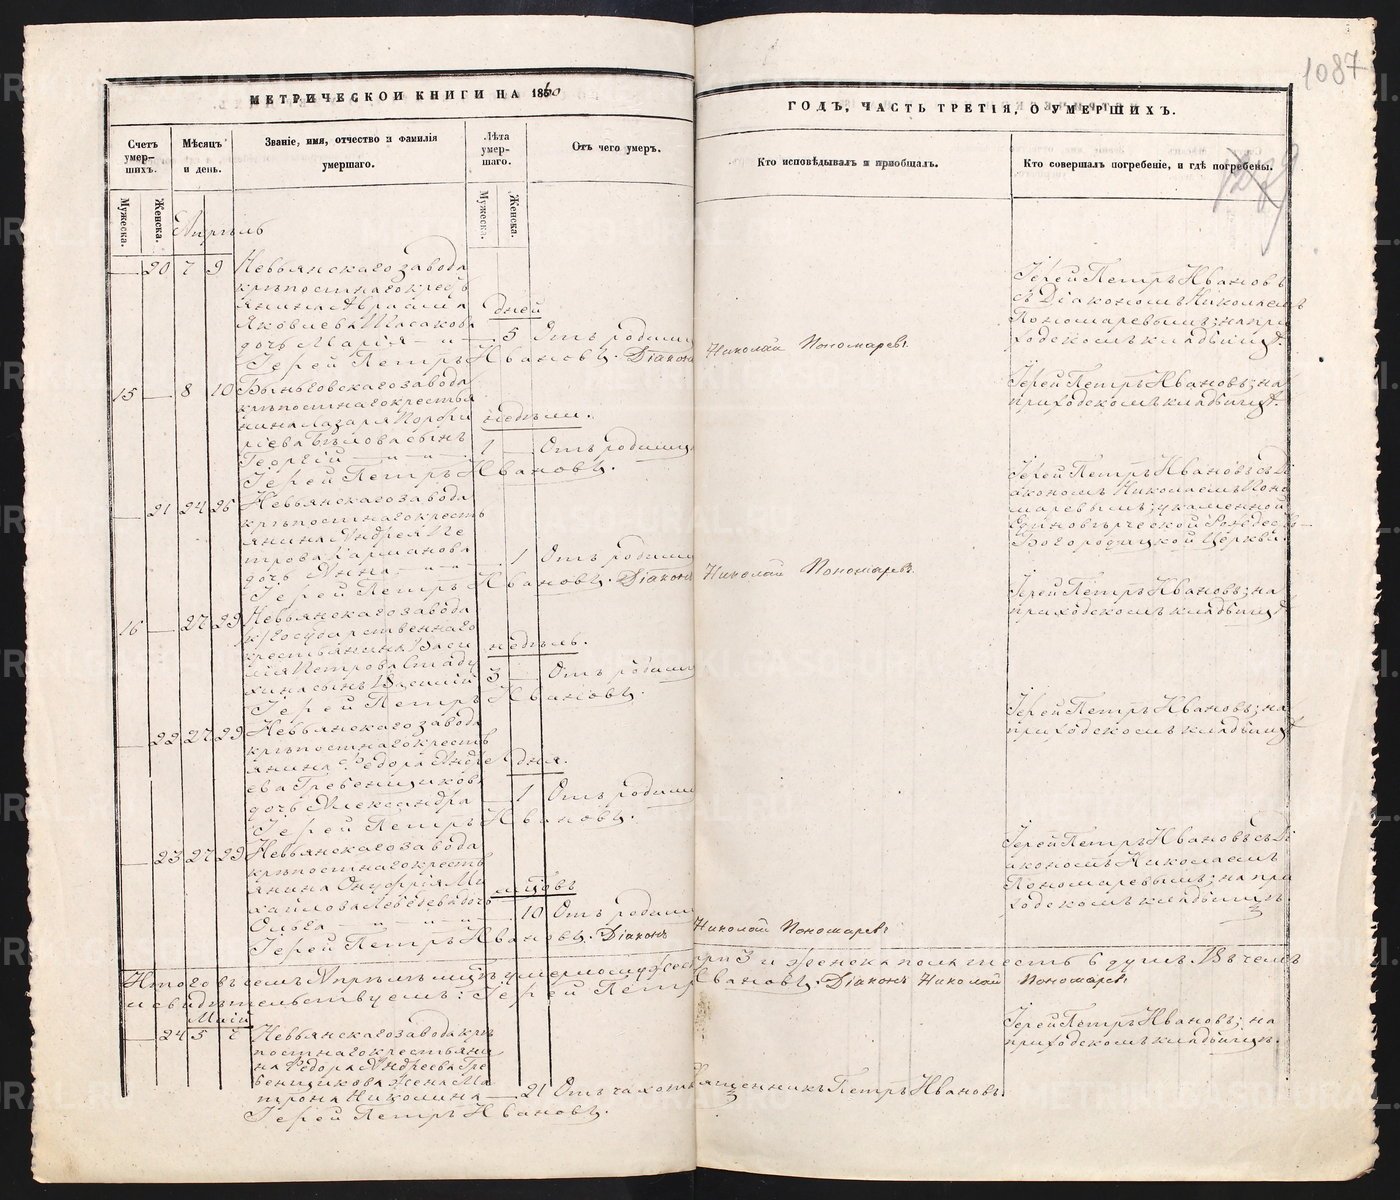 1087
МЕТРИЧЕСКОЙ КНИГИ НА 1860
ГОДЪ, ЧАСТЬ ТРЕТІЯ, О УМЕРШИХЪ.
Счетъ умер-
шихъ.
Мѣсяцъ
и день.
Званіе, имя, отчество и фамилія
умершаго.
Лѣта
умер-
шаго.
Отъ чего умеръ.
Кто исповѣдывалъ и пріобщалъ.
Кто совершалъ погребеніе, и гдѣ погребены.
Мужеска.
Женска.
Мужеска.
Женска.
Апрѣль
20 7 9 Невьянскаго завода
крѣпостнаго кресть
янина Авраамія
Яковлева
дочь Марія
дней
5 Отъ родимц
Іерей Петръ Ивановъ. Діаконъ Николай Пономаревъ
Іерей Петръ Ивановъ
съ Діакономъ Николаемъ
Пономаревымъ; на при
ходскомъ кладбищѣ.
15 8 10 Быньговскаго завода
крѣпостнаго крестья
нина Лазаря Порфи
рьева Бѣлова сынъ
Георгій
недѣли.
1 Отъ родимц
Іерей Петръ Ивановъ.
Іерей Петръ Ивановъ; на
приходскомъ кладбищѣ.
21 24 26 Невьянскаго завода
крѣпостнаго кресть
янина Андрея Пе
трова
дочь Анна
1 Отъ родимц
Іерей Петръ Ивановъ. Діаконъ Николай Пономаревъ
Іерей Петръ Ивановъ съ Ді
акономъ Николаемъ Поно
маревымъ; у каменной
Единовѣрческой Рождест
Богородицкой Церкви.
16 27 29 Невьянскаго завода
государственнаго
крестьянина Васи
лія Петрова
сынъ
недѣль.
3 Отъ родимц
Іерей Петръ Ивановъ.
Іерей Петръ Ивановъ; на
приходскомъ кладбищѣ
22 27 29 Невьянскаго завода
крѣпостнаго кресть
янина Ѳедора Андре
ева Гребенщикова
дочь Александра
дня.
1 Отъ родимц
Іерей Петръ Ивановъ.
Іерей Петръ Ивановъ; на
приходскомъ кладбищѣ
23 27 29 Невьянскаго завода
крѣпостнаго кресть
янина Онуфрія Ми
хайлова Лебедева дочь
Ольга
мѣсцовъ
10 Отъ родимц
Іерей Петръ Ивановъ. Діаконъ Николай Пономаревъ
Іерей Петръ Ивановъ съ Ді
акономъ Николаемъ
Пономаревымъ; на при
ходскомъ кладбищѣ
Итого въ семъ Апрѣлѣ мцѣ умерло мужеска при 3 и женска пола шесть 6 душъ. Въ чемъ
и свидѣтельствуемъ: Іерей Петръ Ивановъ. Діаконъ Николай Пономаревъ
Маій
24 5 7 Невьянскаго завода крѣ
постнаго крестьяни
на Ѳедора Андреева Гре
бенщикова жена Ма
трона Николина
21 Отъ чахотки
Священникъ Петръ Ивановъ.
Іерей Петръ Ивановъ.
Іерей Петръ Ивановъ; на
приходскомъ кладбищѣ.